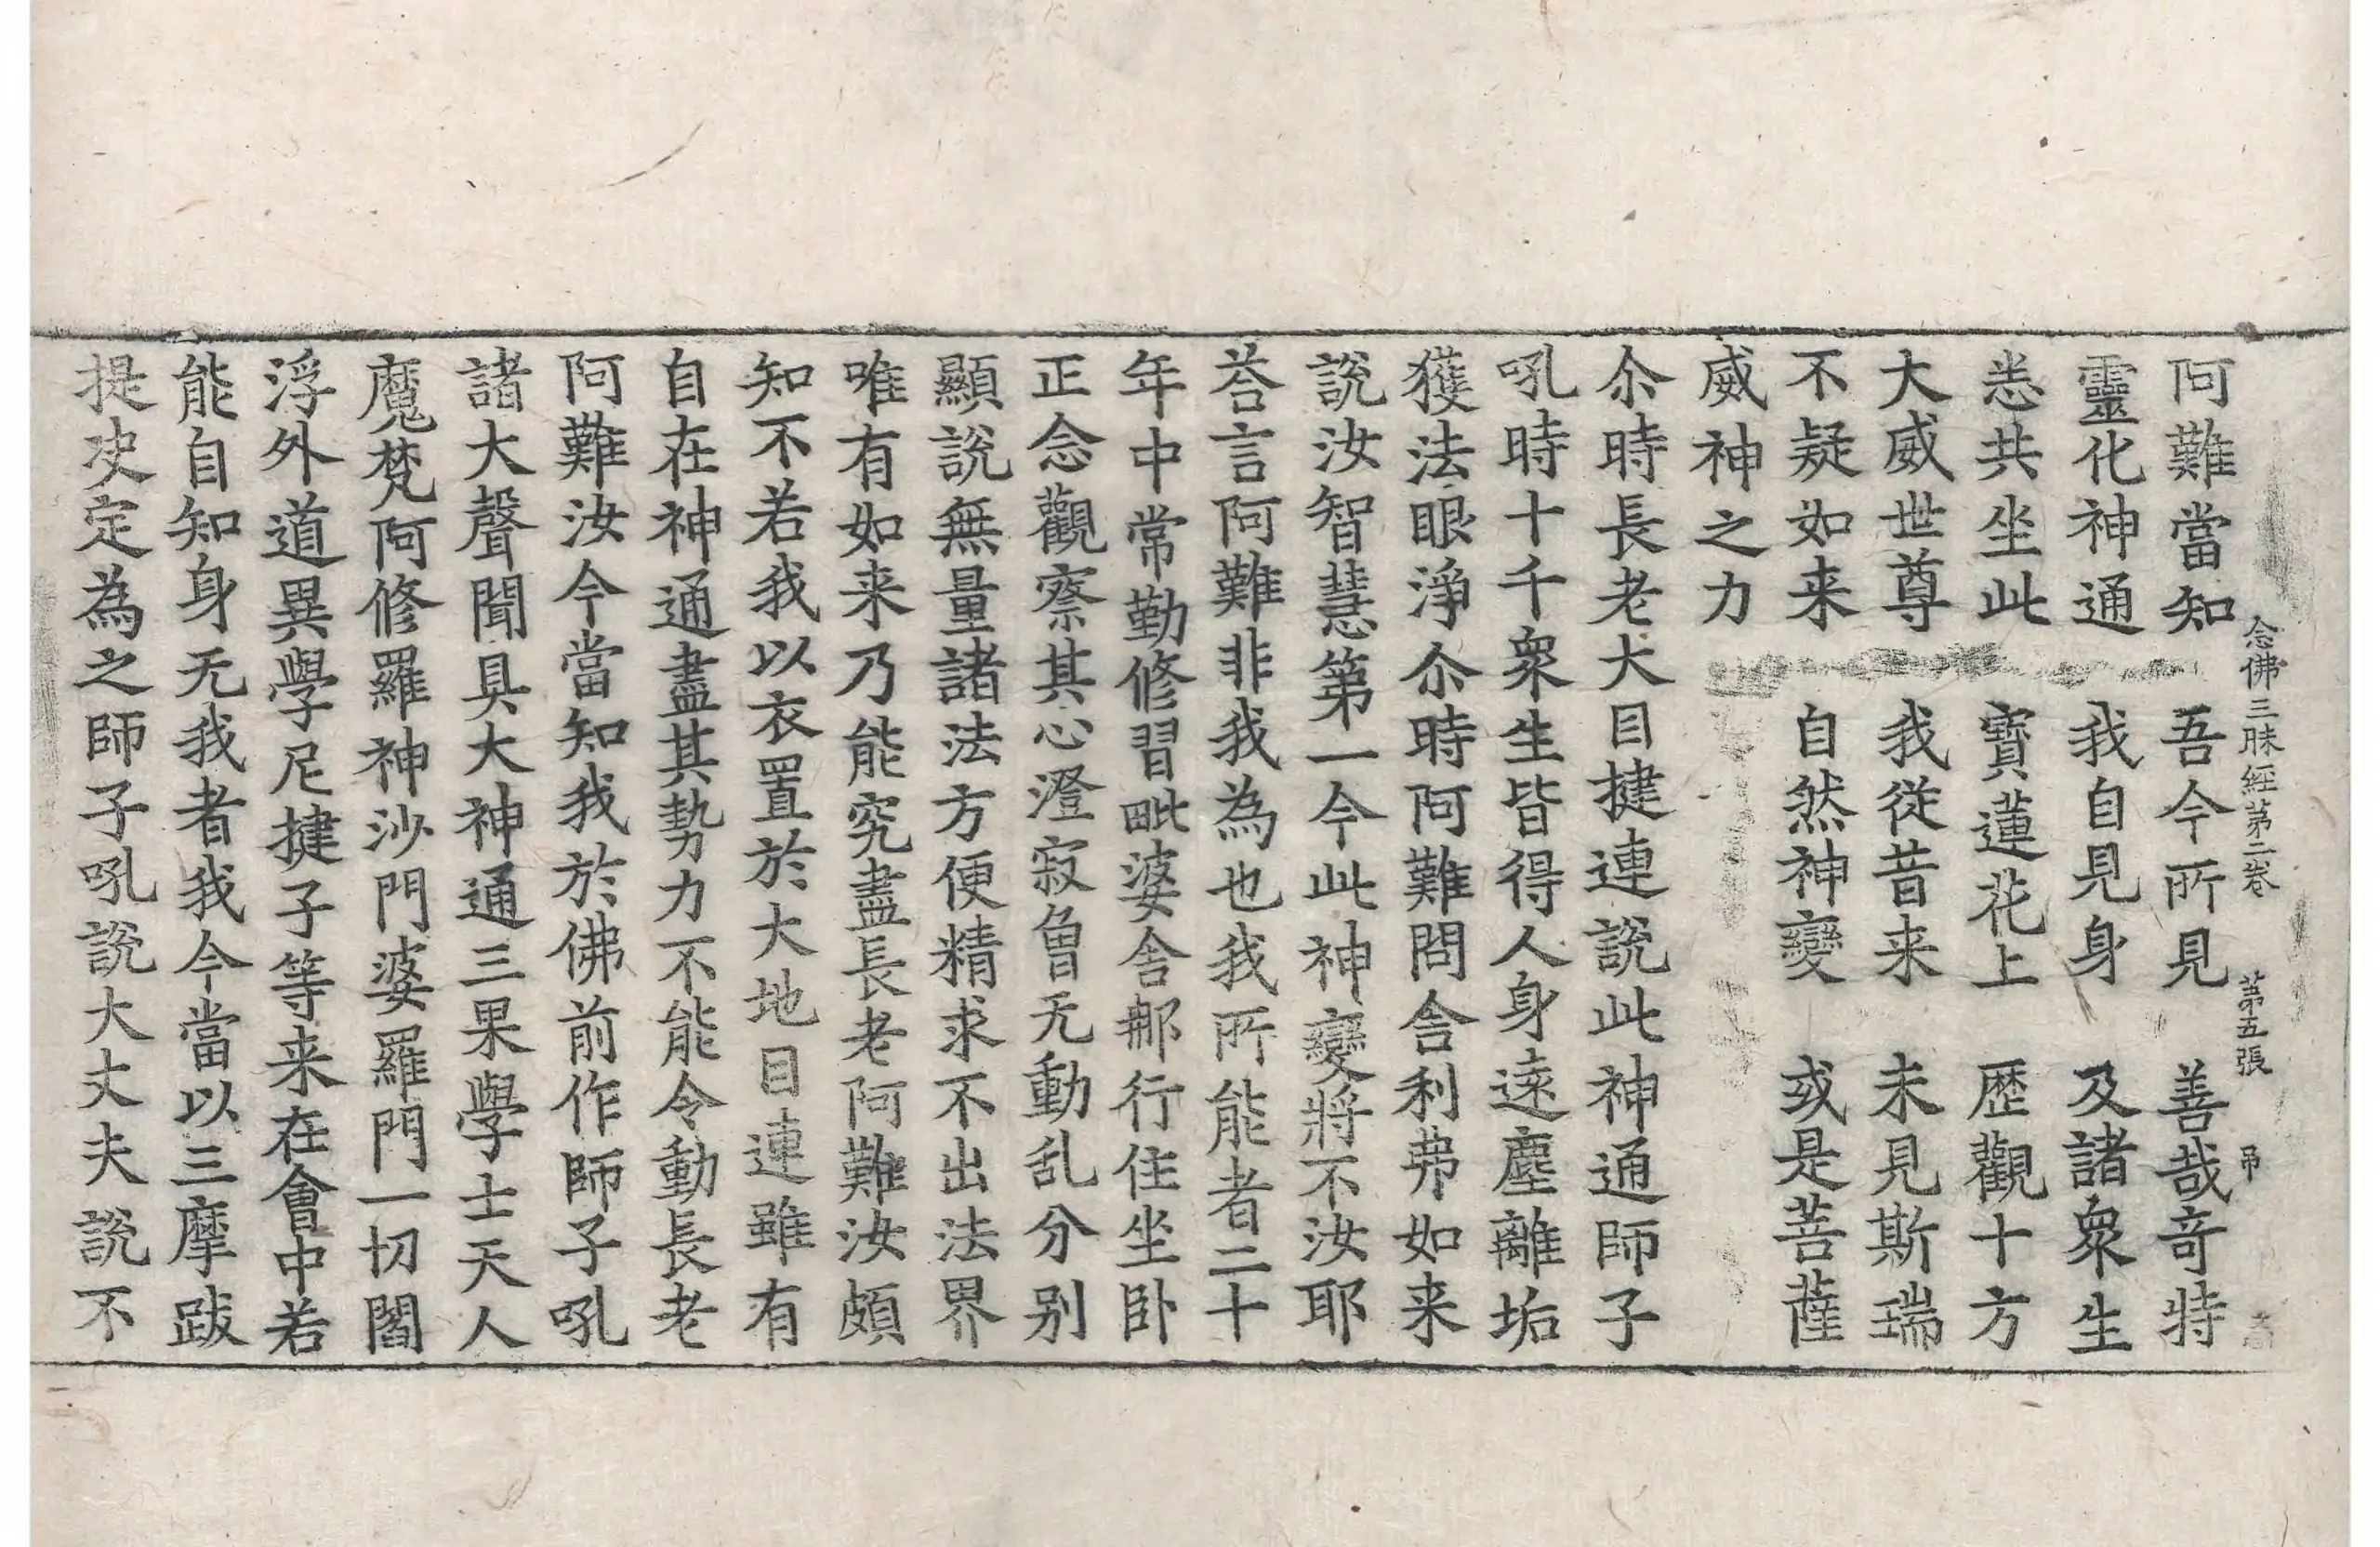 念佛三昧經第二卷 第五張 弔
阿難當知 吾今所見 善哉竒特
靈化神通 我自見身 及諸衆生
悉共坐此 寶蓮花上 歷觀十方
大威世尊 我從昔来 未見斯瑞
不疑如来 自然神變 或是菩薩
威神之力
尒時長老大目揵連說此神通師子
吼時十千衆生皆得人身遠塵離垢
獲法眼淨尒時阿難問舎利弗如来
說汝智慧第一今此神變將不汝耶
荅言阿難非我為也我所能者二十
年中常勤修習毗婆舎那行住坐卧
正念觀察其心澄寂曾无動乱分别
顯說無量諸法方便精求不出法界
唯有如来乃能究盡長老阿難汝頗
知不若我以衣置於大地目連雖有
自在神通盡其勢力不能令動長老
阿難汝今當知我於佛前作師子吼
諸大聲聞具大神通三果學士天人
魔梵阿修羅神沙門婆羅門一切閻
浮外道異學尼揵子等来在會中若
能自知身无我者我今當以三摩跋
提决定為之師子吼說大丈夫說不